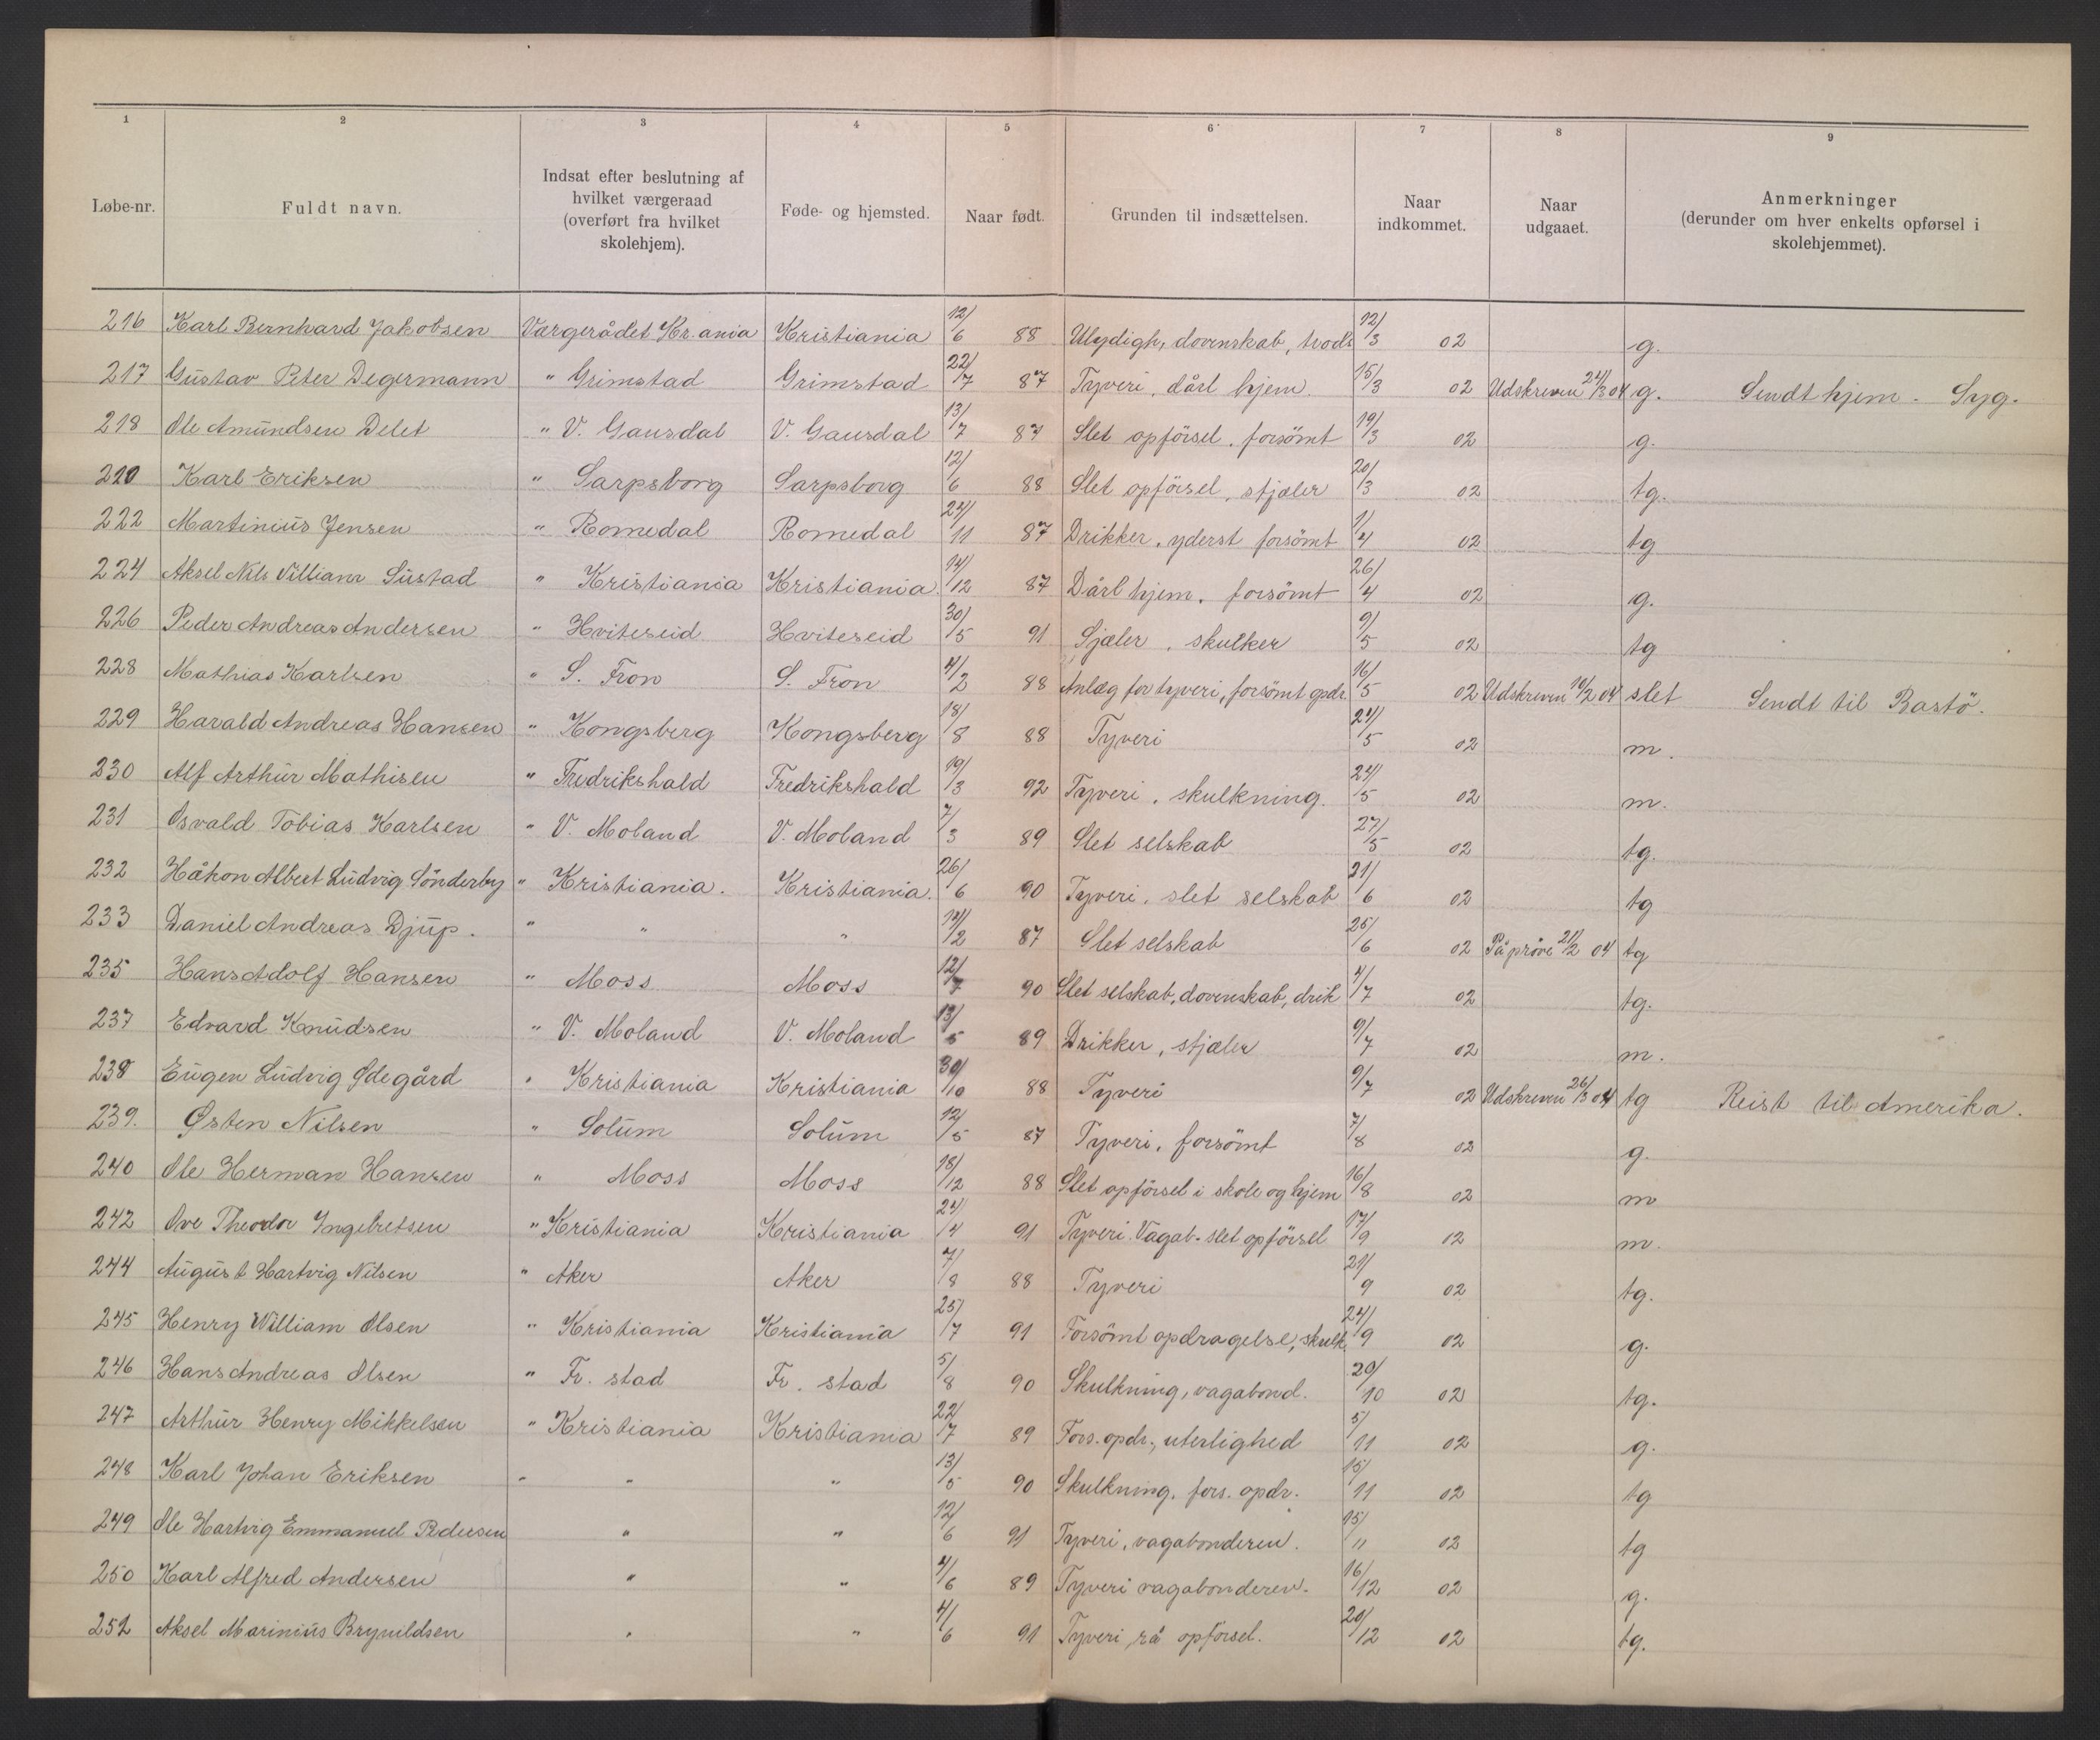 1 2 3 4 5 6 7 8 9
Løbe-nr. Fuldt navn. Indsat efter beslutning af hvilket værgeraad (overført fra hvilket skolehjem). Føde- og hjemsted. Naar født. Grunden til indsættelsen. Naar indkommet. Naar udgaaet. Anmerkninger (derunder om hver enkelts opførsel i skolehjemmet).
216 Karl Bernhard Jakobsen Værgerådet Kr.ania Kristiania 12/6 88 Ulydigh, dovenskab, trods 12/3 02 g.
217 Gustav Peter Degermann " Grimstad Grimstad 22/7 87 Tyveri, dårl hjem. 15/3 02 Udskreven 24/3 04 g. Sendt hjem - Syg.
218 Ole Amundsen Delet " V. Gausdal V. Gausdal 13/7 87 Slet opförsel, forsömt 19/3 02 g.
220 Karl Eriksen " Sarpsborg Sarpsborg 12/6 88 Slet opförsel, stjæler 20/3 02 tg.
222 Martinius Jensen " Romedal Romedal 24/11 87 Drikker, yderst forsömt 1/4 02 tg
224 Aksel Nils Villiam Sustad " Kristiania Kristiania 14/12 87 Dårl hjem, forsömt 26/4 02 g.
226 Peder Andreas Andersen " Hviteseid Hviteseid 30/5 91 Sjæler, skulker 9/5 02 tg
228 Mathias Karlsen " S. Fron S. Fron 4/2 88 Anlæg for tyveri, forsömt opdr. 16/5 02 Udskreven 10/2 04 slet Sendt til Bastö.
229 Harald Andreas Hansen " Kongsberg Kongsberg 18/8 88 Tyveri 24/5 02 m.
230 Alf Arthur Mathisen " Fredrikshald Fredrikshald 19/3 92 Tyveri, skulkning. 24/5 02 m.
231 Osvald Tobias Karlsen " V. Moland V. Moland 7/3 89 Slet selskab 27/5 02 tg.
232 Håkon Albert Ludvig Sönderby " Kristiania. Kristiania. 26/6 90 Tyveri, slet selskab 21/6 02 tg
233 Daniel Andreas Djup. " " " 12/2 87 Slet selskab 25/6 02 På pröve 21/2 04 tg
235 Hans Adolf Hansen " Moss Moss 12/7 90 Slet selskab, dovenskab, drik 4/7 02 tg.
237 Edvard Knudsen " V. Moland V. Moland 13/5 89 Drikker, stjæler 9/7 02 m.
238 Eugen Ludvig Ødegård " Kristiania Kristiania 30/10 88 Tyveri 9/7 02 Udskreven 26/3 04 tg Reist til Amerika.
239. Østen Nilsen " Solum Solum 12/5 87 Tyveri, forsömt 7/8 02 g.
240 Ole Herman Hansen " Moss Moss 18/12 88 Slet opförsel i skole og hjem 16/8 02 m
242 Ove Theodor Ingebretsen " Kristiania Kristiania 24/4 91 Tyveri. Vagab. slet opförsel 17/9 02 m.
244 August Hartvig Nilsen " Aker Aker 7/8 88 Tyveri 21/9 02 tg.
245 Henry William Olsen " Kristiania Kristiania 25/7 91 Forsömt opdragelse, skulk. 24/9 02 g.
246 Hans Andreas Olsen " Fr. stad Fr. stad 5/8 90 Skulkning, vagabond. 20/10 02 tg.
247 Arthur Henry Mikkelsen " Kristiania Kristiania 22/7 89 Fors. opdr., uterlighed 5/11 02 g.
248 Karl Johan Eriksen " " " 13/5 90 Skulkning, fors. opdr. 15/11 02 tg
249 Ole Hartvig Emmanuel Pedersen " " 12/6 91 Tyveri, vagabonderen. 15/11 02 tg
250 Karl Alfred Andersen " " 4/6 89 Tyveri vagabonderen. 16/12 02 g.
252 Aksel Marinius Brynildsen " " 4/6 91 Tyveri, rå opförsel. 20/12 02 tg.